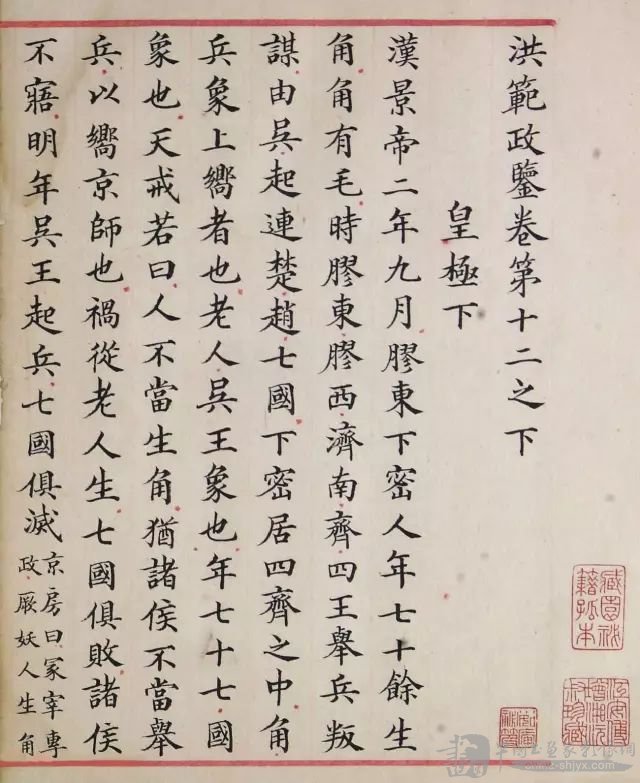 洪範政鑒卷第十二之下
皇極下
漢景帝二年九月膠東下密人年七十餘生
角角有毛時膠東膠西濟南齊四王舉兵叛
謀由吳起連楚趙七國下密居四齊之中角
兵象上嚮者也老人吳王象也年七十七國
象也天戒若曰人不當生角猶諸侯不當舉
兵以嚮京師也禍從老人生七國俱敗諸侯
不寤明年吳王起兵七國俱滅京房曰冢宰專
政厥妖人生角
藏園祕
籍孤本